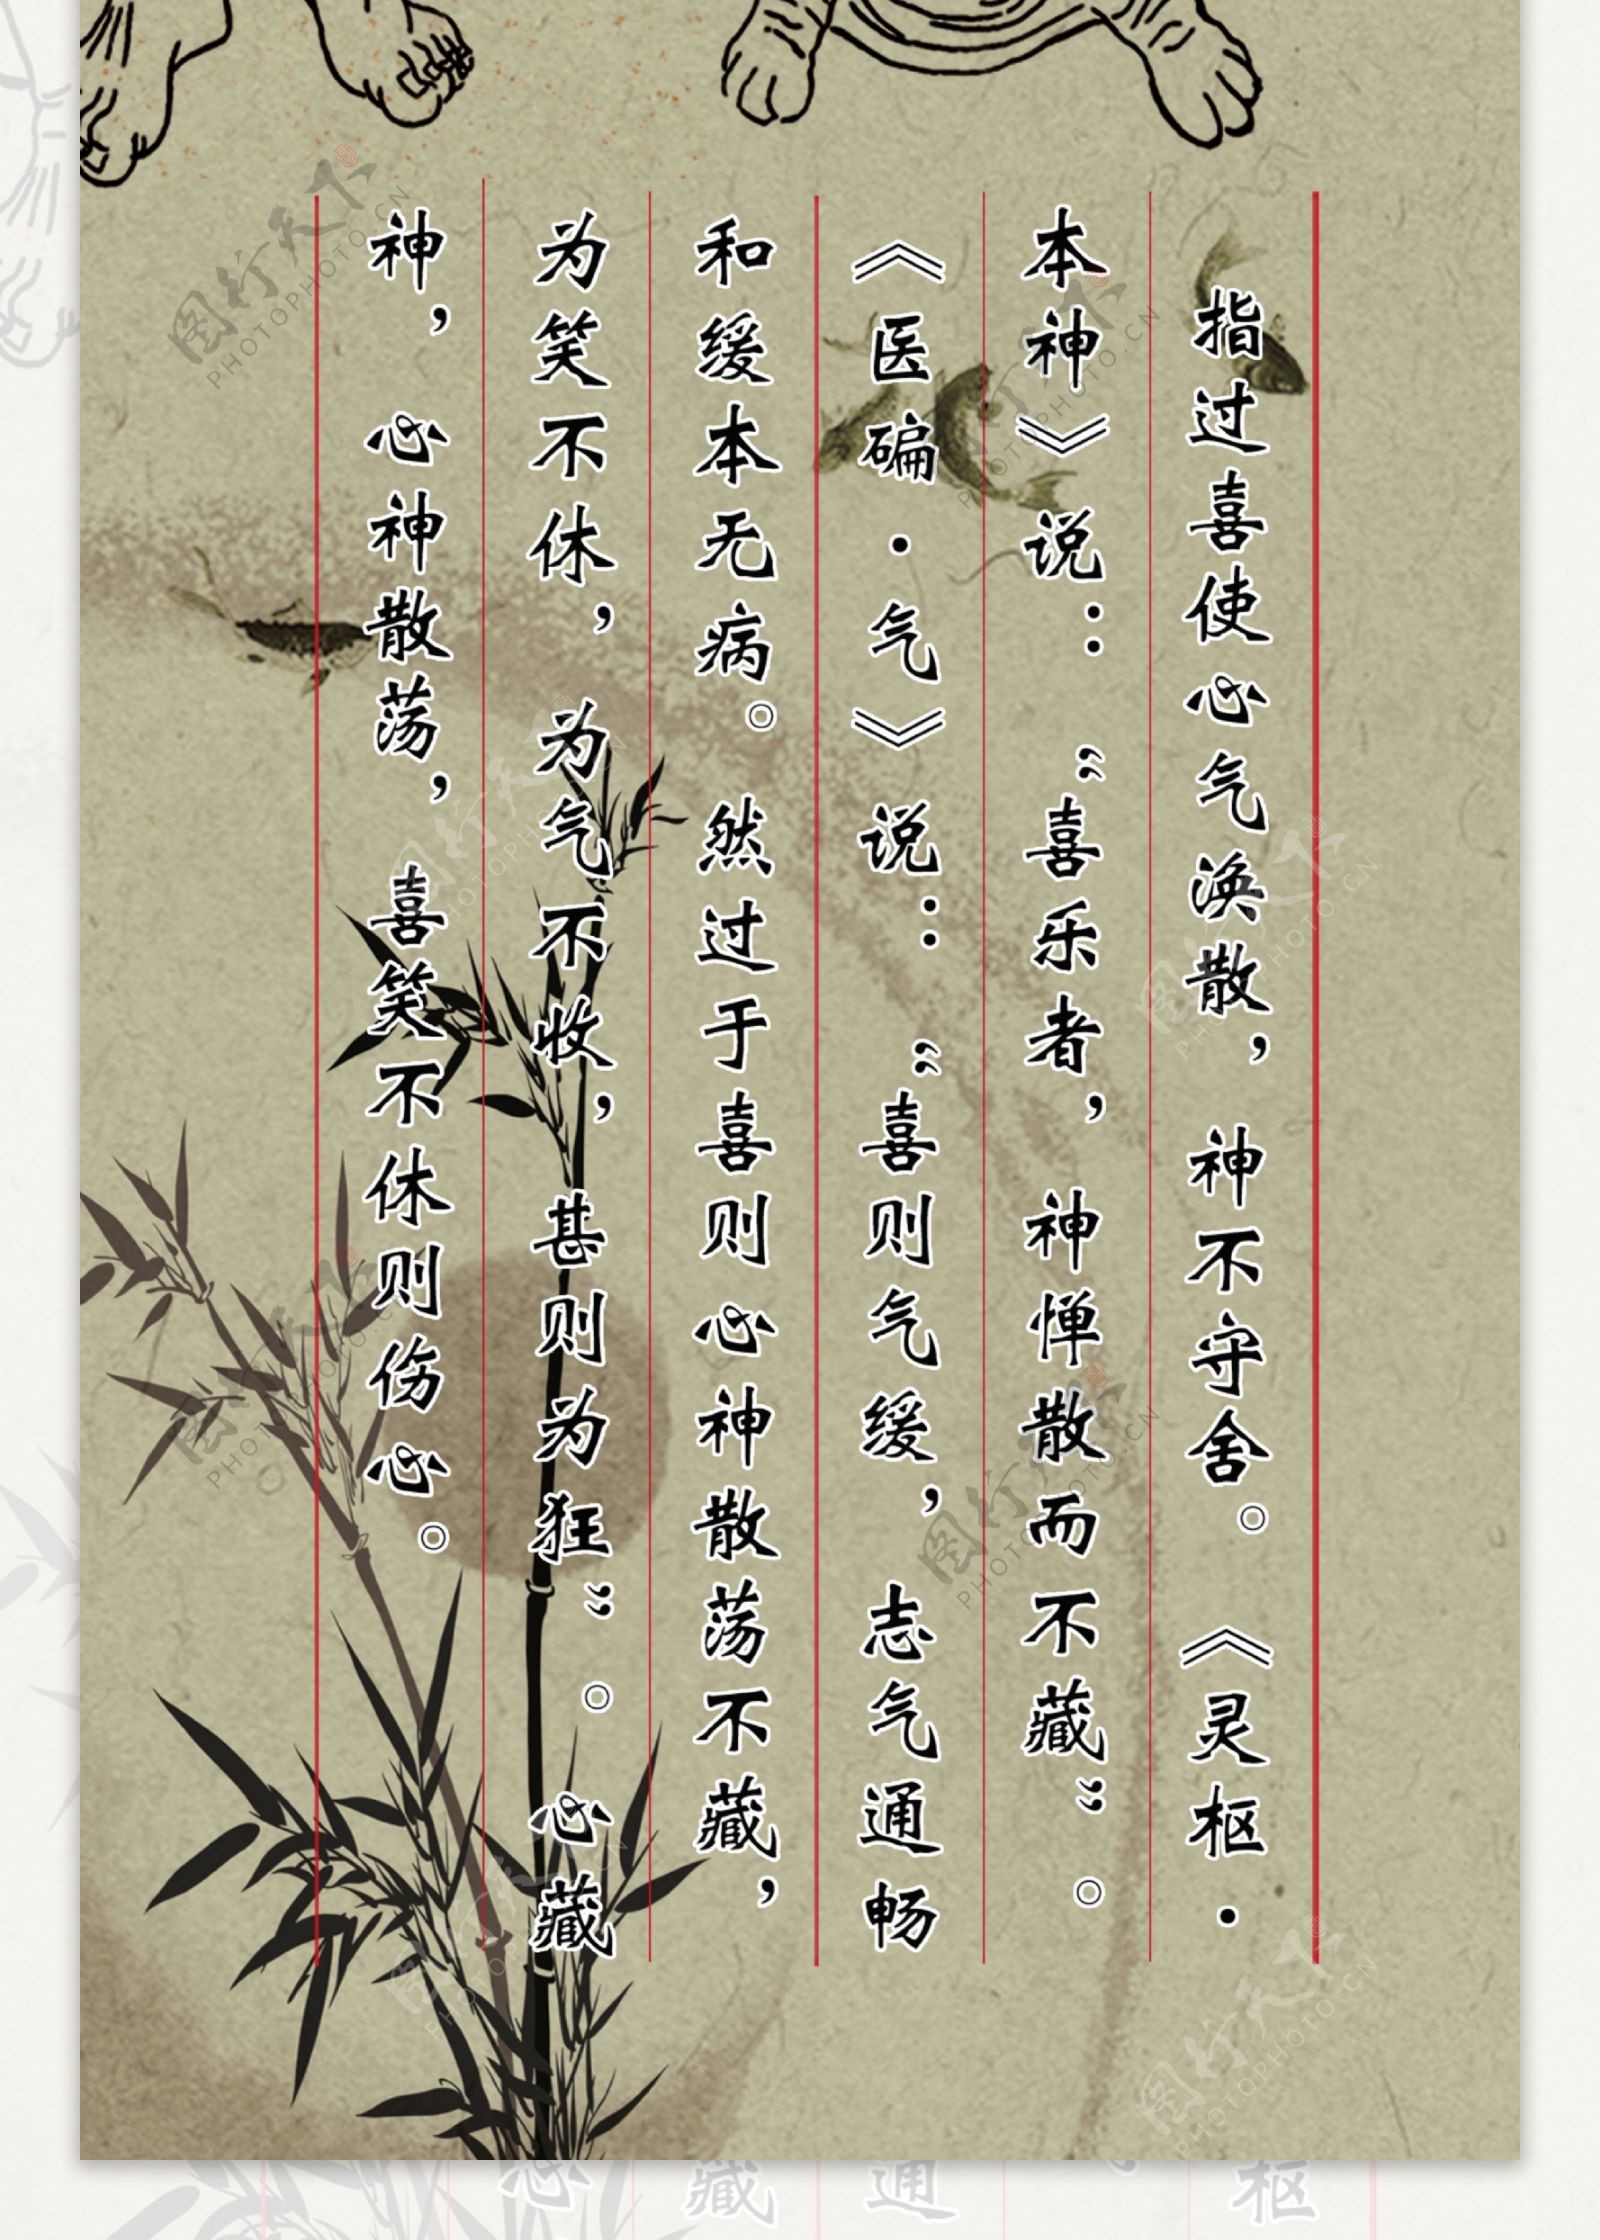 指过喜使心气涣散，神不守舍。《灵枢·
本神》说：“喜乐者，神惮散而不藏”。
《医碥·气》说：“喜则气缓，志气通畅
和缓本无病。然过于喜则心神散荡不藏，
为笑不休，为气不收，甚则为狂”。心藏
神，心神散荡，喜笑不休则伤心。
图行天下
PHOTOPHOTO.CN